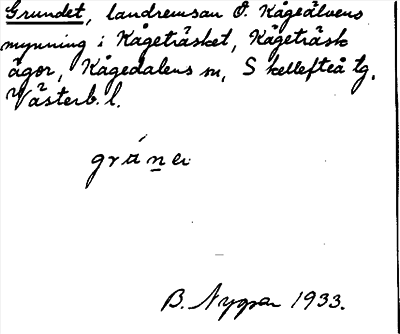 Grundet, landremsan Ö. Kågeälvens
mynning i Kågeträsket, Kågeträsk
ägor, Kågedalens sn, Skellefteå tg,
Västerb. l.
B. Nygren 1933.